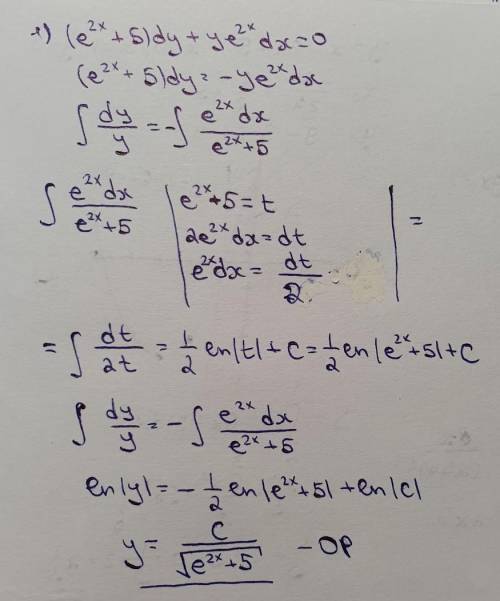 1) (e^{2x} + 5)dy + ye^{2x} dx = 0
(e^{2x} + 5)dy = -ye^{2x} dx
∫ dy/y = -∫ e^{2x} dx / (e^{2x} + 5)
∫ e^{2x} dx / (e^{2x} + 5) | e^{2x} + 5 = t
2e^{2x} dx = dt
e^{2x} dx = dt/2 | =
= ∫ dt/2t = 1/2 ln|t| + C = 1/2 ln|e^{2x} + 5| + C
∫ dy/y = -∫ e^{2x} dx / (e^{2x} + 5)
ln|y| = -1/2 ln|e^{2x} + 5| + ln|C|
y = C/√(e^{2x} + 5) - OP